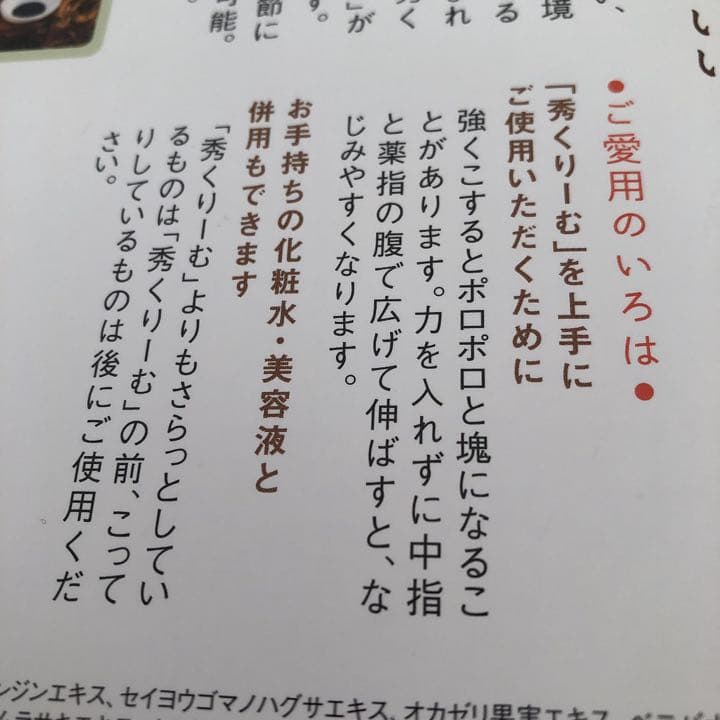 いい
●ご愛用のいろは●
「秀くりーむ」を上手に
ご使用いただくために
強くこするとポロポロと塊になるこ
とがあります。力を入れずに中指
と薬指の腹で広げて伸ばすと、な
じみやすくなります。
お手持ちの化粧水・美容液と
併用もできます
「秀くりーむ」よりもさらっとしてい
るものは「秀くりーむ」の前、こって
りしているものは後にご使用くだ
さい。
ンジンエキス、セイヨウゴマノハグサエキス、オカゼリ果実エキス、